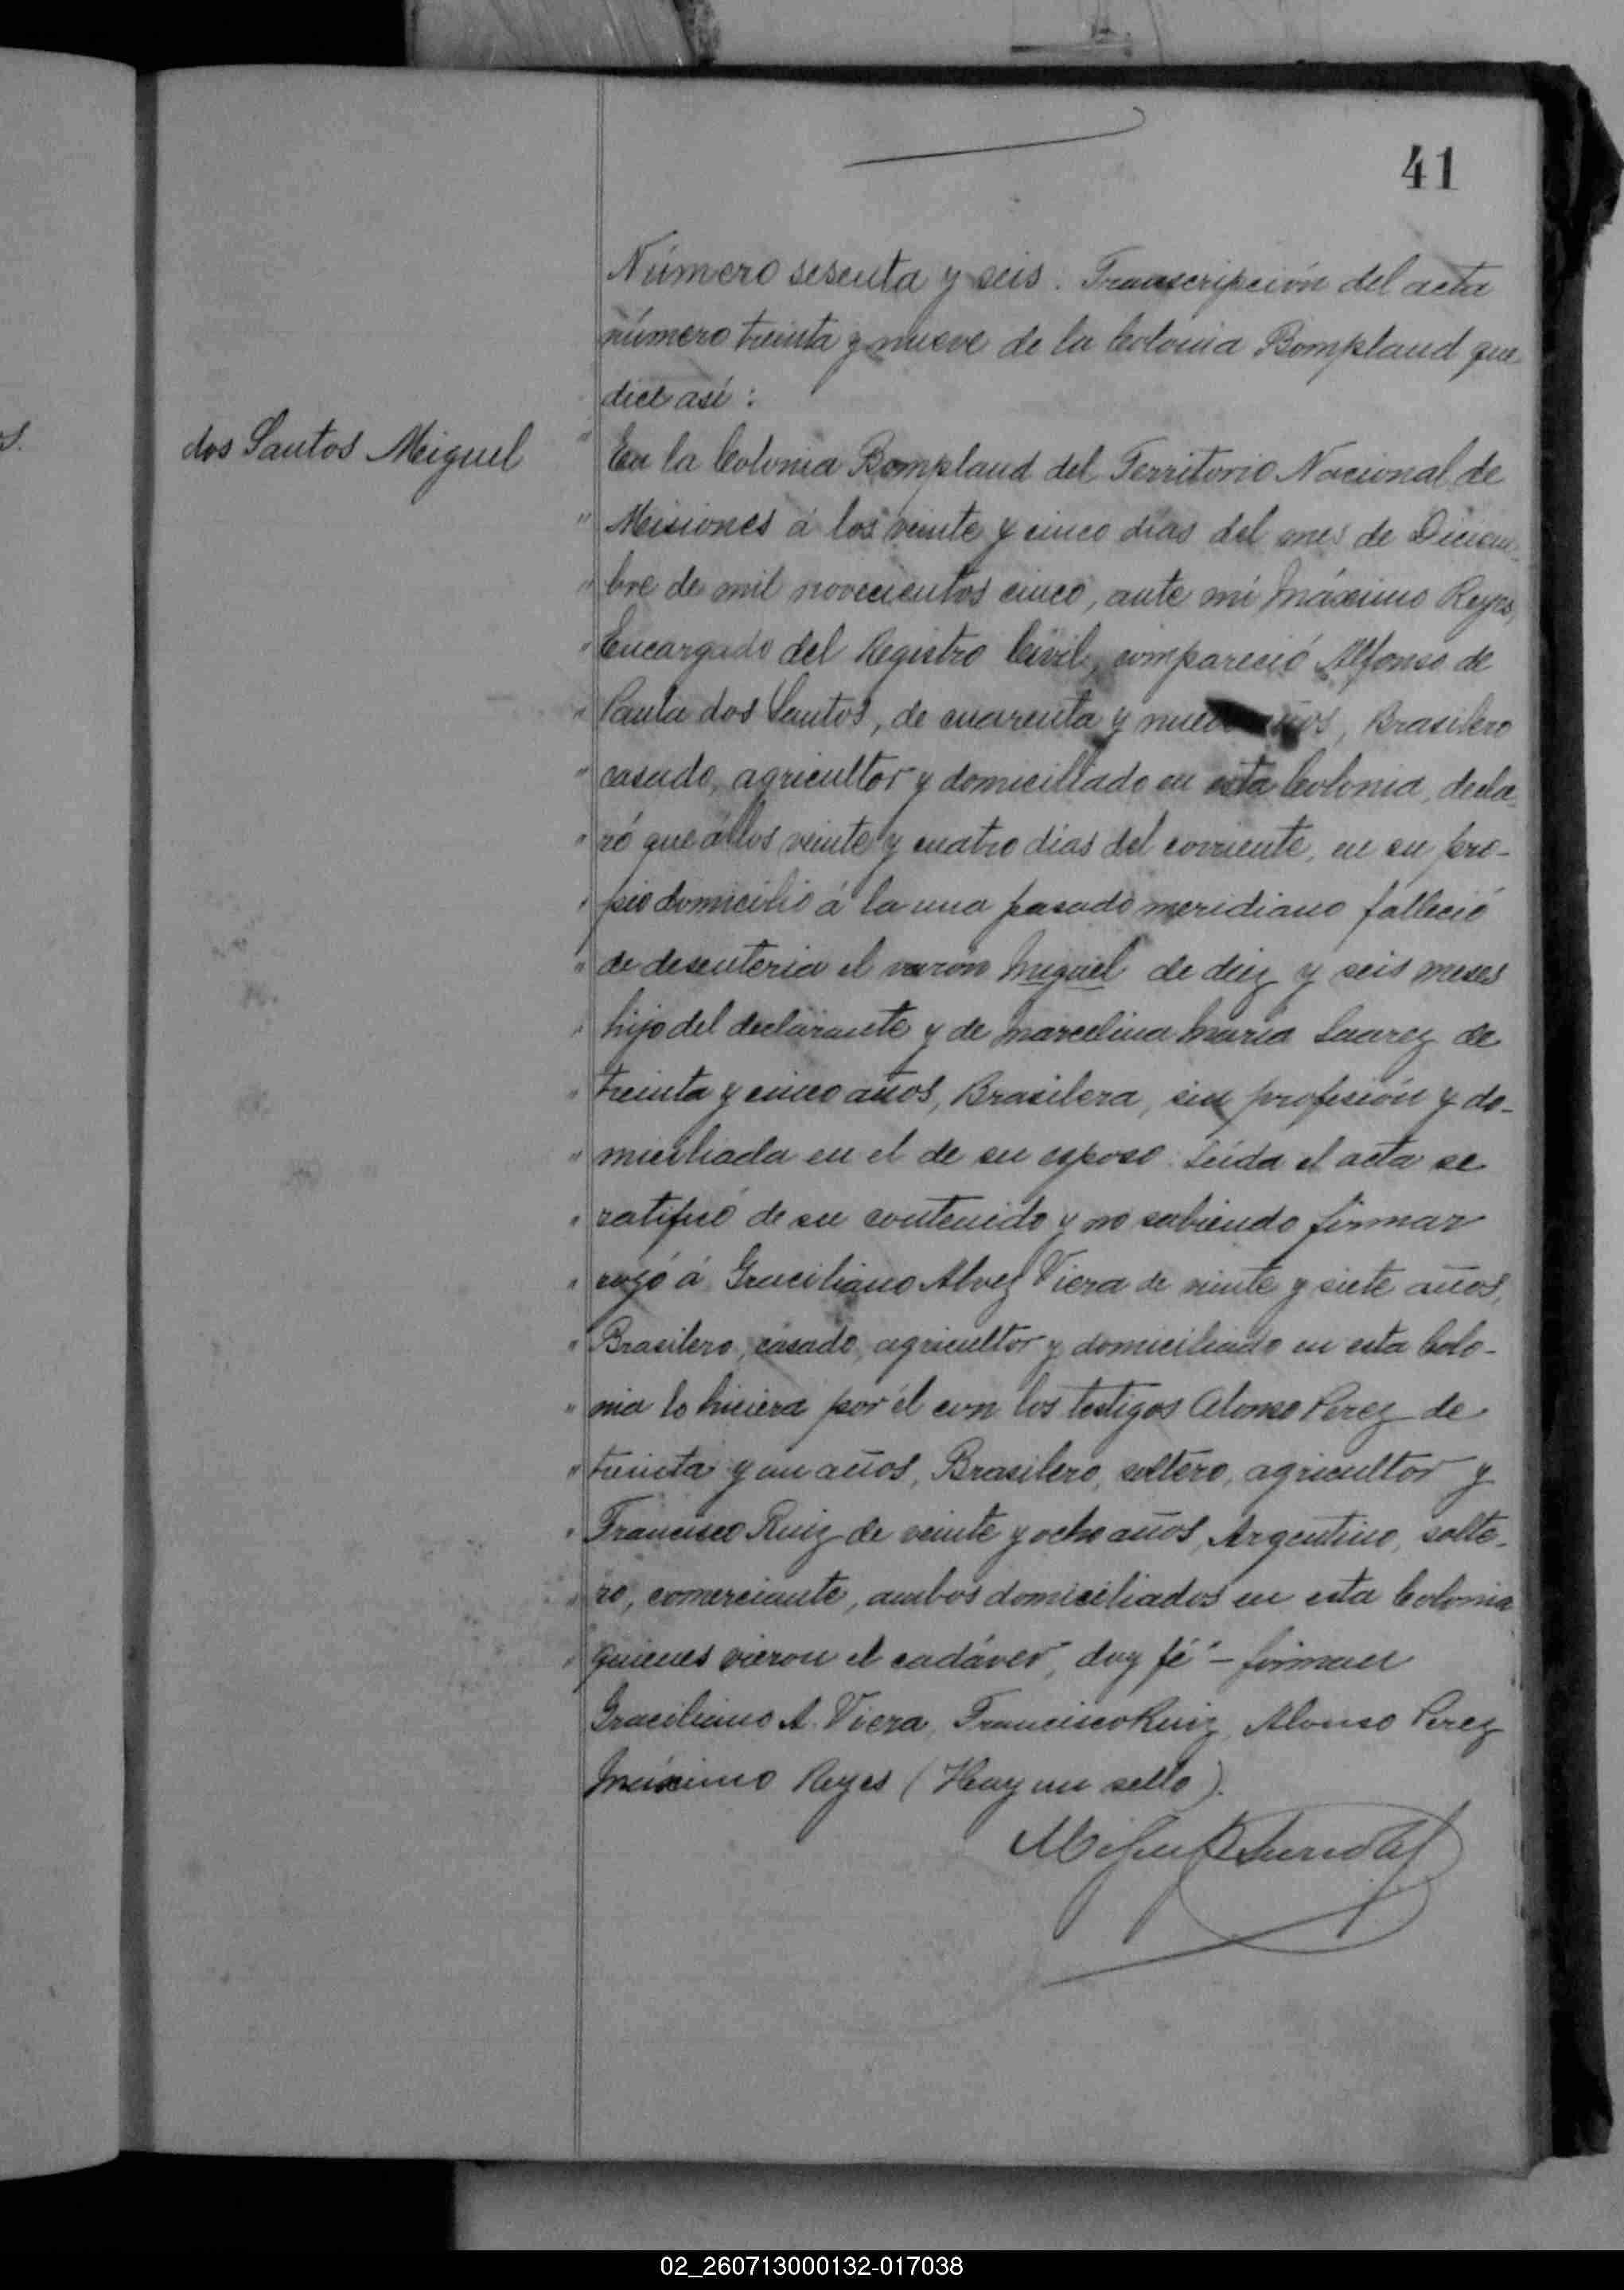 41
Número sesenta y seis. Transcripción del acta
número treinta y nueve de la Colonia Bompland que
dice así:
dos Santos Miguel
" En la Colonia Bompland del Territorio Nacional de
" Misiones á los veinte y cinco dias del mes de Diciem-
" bre de mil novecientos cinco, ante mí Máximo Reyes,
" Encargado del Registro Civil, compareció Alfonso de
" Paula dos Santos, de cuarenta y nueve años, Brasilero
" casado, agricultor y domiciliado en esta Colonia, decla-
" ró que á los veinte y cuatro dias del corriente, en su pro-
" pio domicilio á la una pasado meridiano falleció
" de desenteria el varón Miguel de diez y seis meses
" hijo del declarante y de Marcelina Maria Suarez de
" treinta y cinco años, Brasilera, sin profesión y do-
" miciliada en el de su esposo. Leida el acta se
" ratificó de su contenido y no sabiendo firmar
" rogó á Graciliano Alvez Viera de veinte y siete años,
" Brasilero, casado, agricultor y domiciliado en esta Colo-
" nia lo hiciera por él con los testigos Alonso Perez de
" treinta y un años, Brasilero, soltero, agricultor y
" Francisco Ruiz de veinte y ocho años, Argentino, solte-
" ro, comerciante, ambos domiciliados en esta Colonia
" quienes vieron el cadáver, doy fé" - firman
Graciliano A. Viera, Francisco Ruiz, Alonso Perez
Máximo Reyes (Hay un sello).
02_260713000132-017038